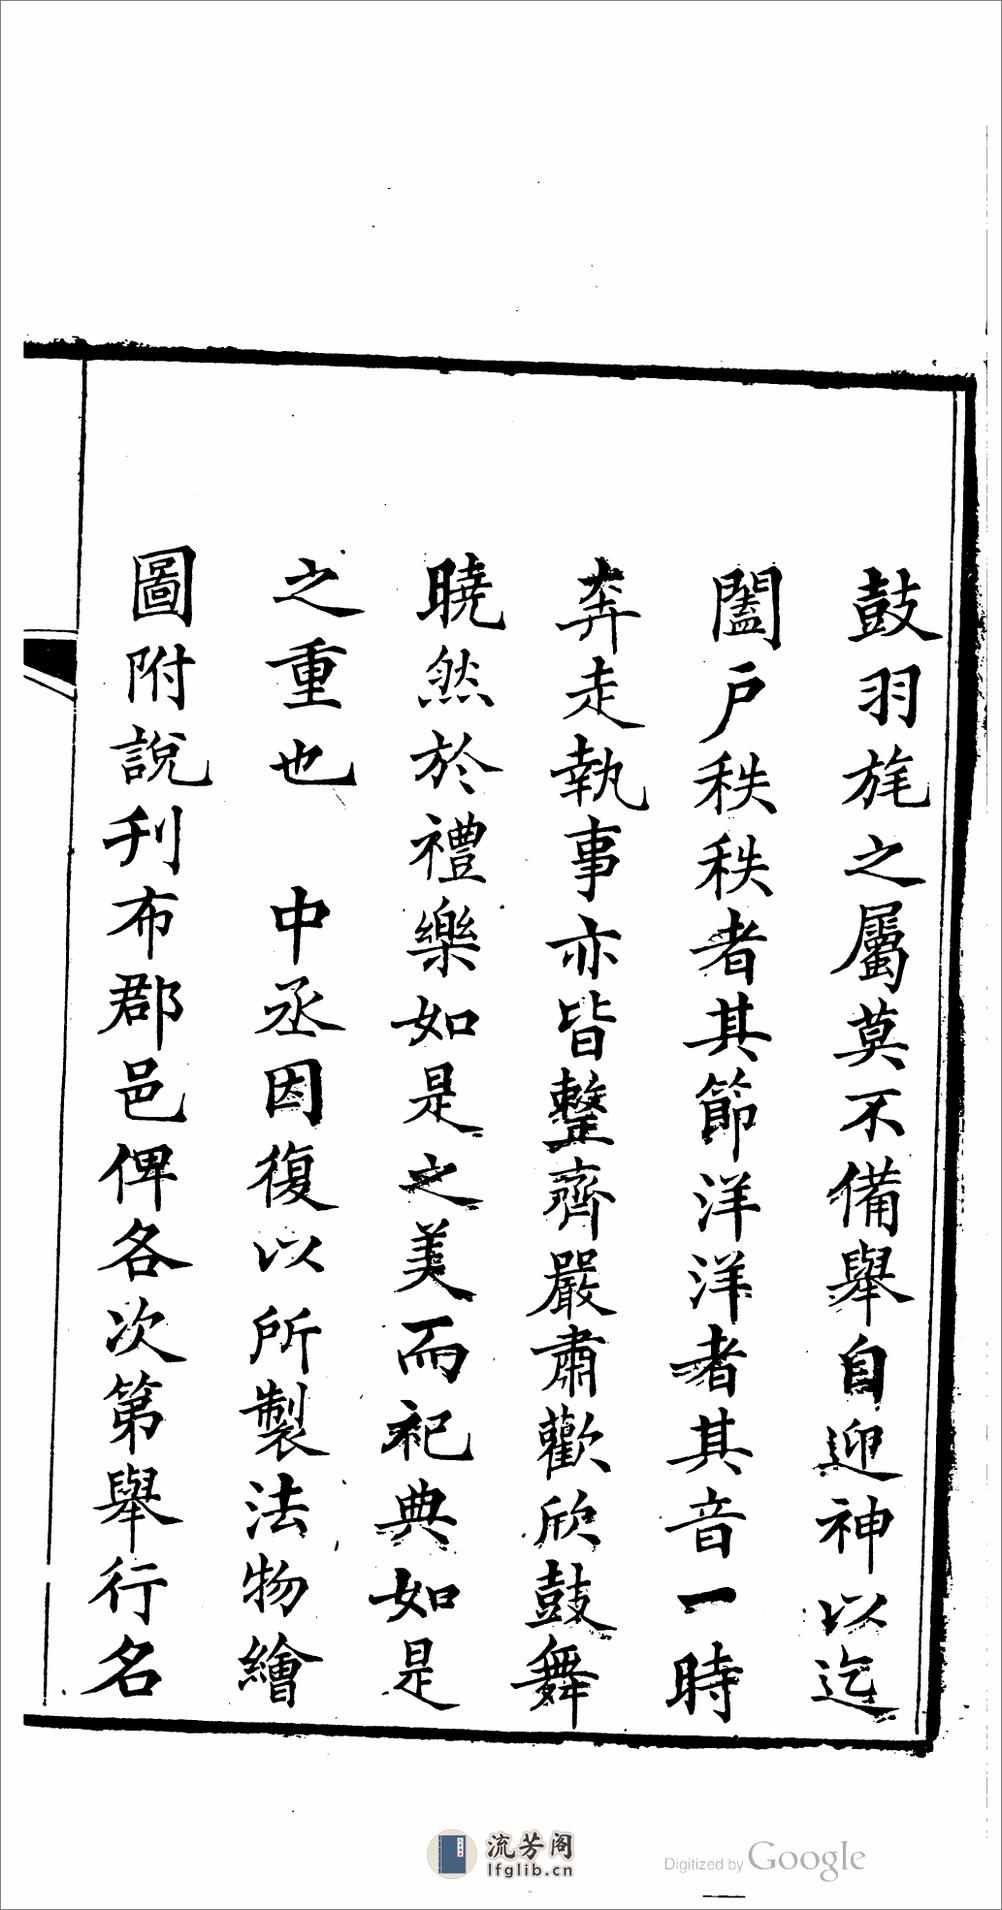 鼓羽旄之屬莫不備舉自迎神以迄
闔戶秩秩者其節洋洋者其音一時
奔走執事亦皆整齊嚴肅歡欣鼓舞
曉然於禮樂如是之美而祀典如是
之重也　中丞因復以所製法物繪
圖附說刋布郡邑俾各次第舉行名
流芳阁
lfglib.cn
Digitized by Google